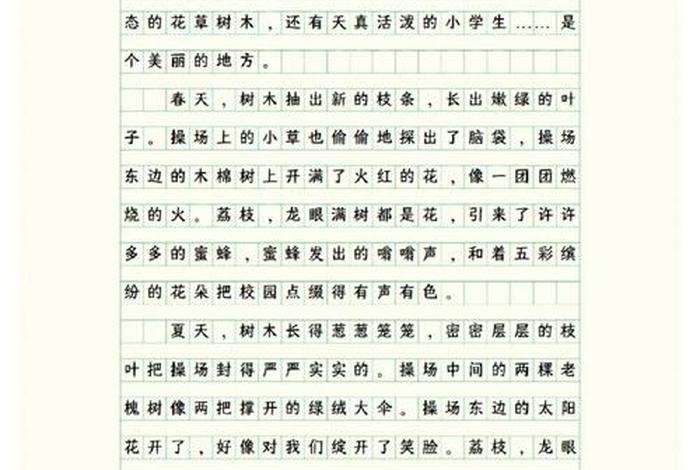 态的花草树木，还有天真活泼的小学生……是
个美丽的地方。
春天，树木抽出新的枝条，长出嫩绿的叶
子。操场上的小草也偷偷地探出了脑袋，操场
东边的木棉树上开满了火红的花，像一团团燃
烧的火。荔枝，龙眼满树都是花，引来了许许
多多的蜜蜂，蜜蜂发出的嗡嗡声，和着五彩缤
纷的花朵把校园点缀得有声有色。
夏天，树木长得葱葱笼笼，密密层层的枝
叶把操场封得严严实实的。操场中间的两棵老
槐树像两把撑开的绿绒大伞。操场东边的太阳
花开了，好像对我们绽开了笑脸。荔枝，龙眼